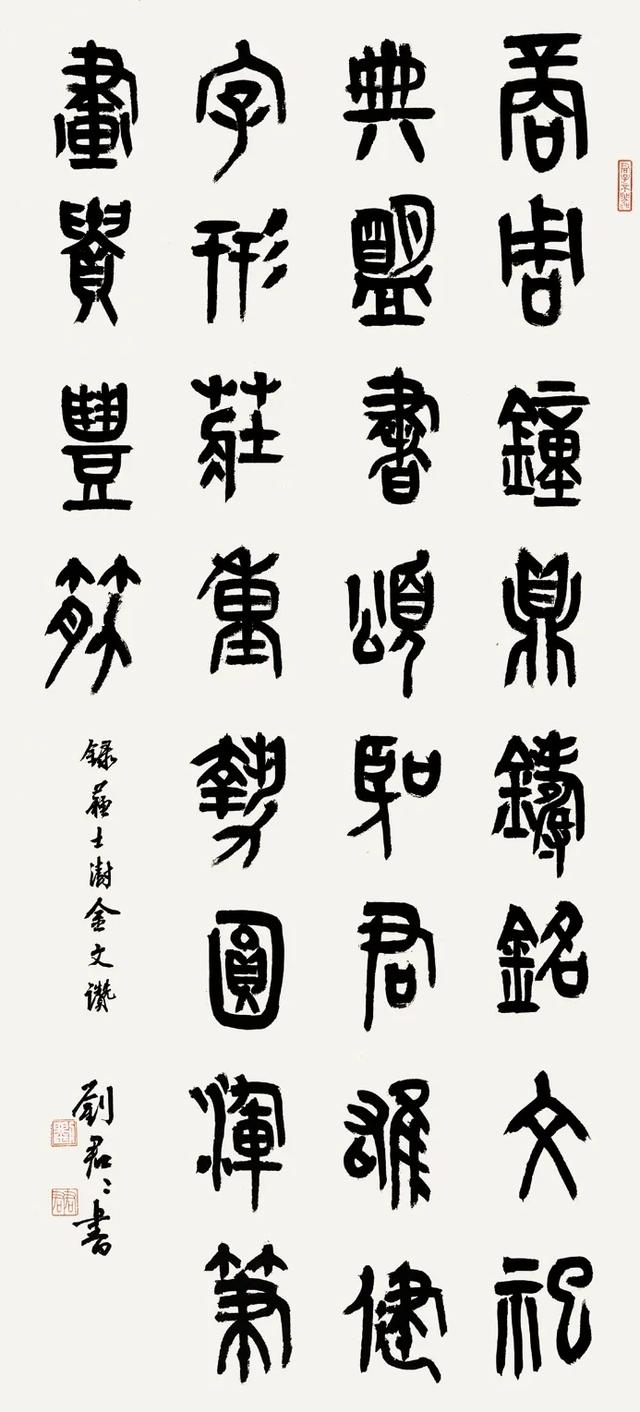 商周鐘鼎鑄銘文祀
典盟書頌聖君雄健
字形莊重勢圓渾筆
畫貴豐筋
録蘇士澍金文讚
劉君〻書